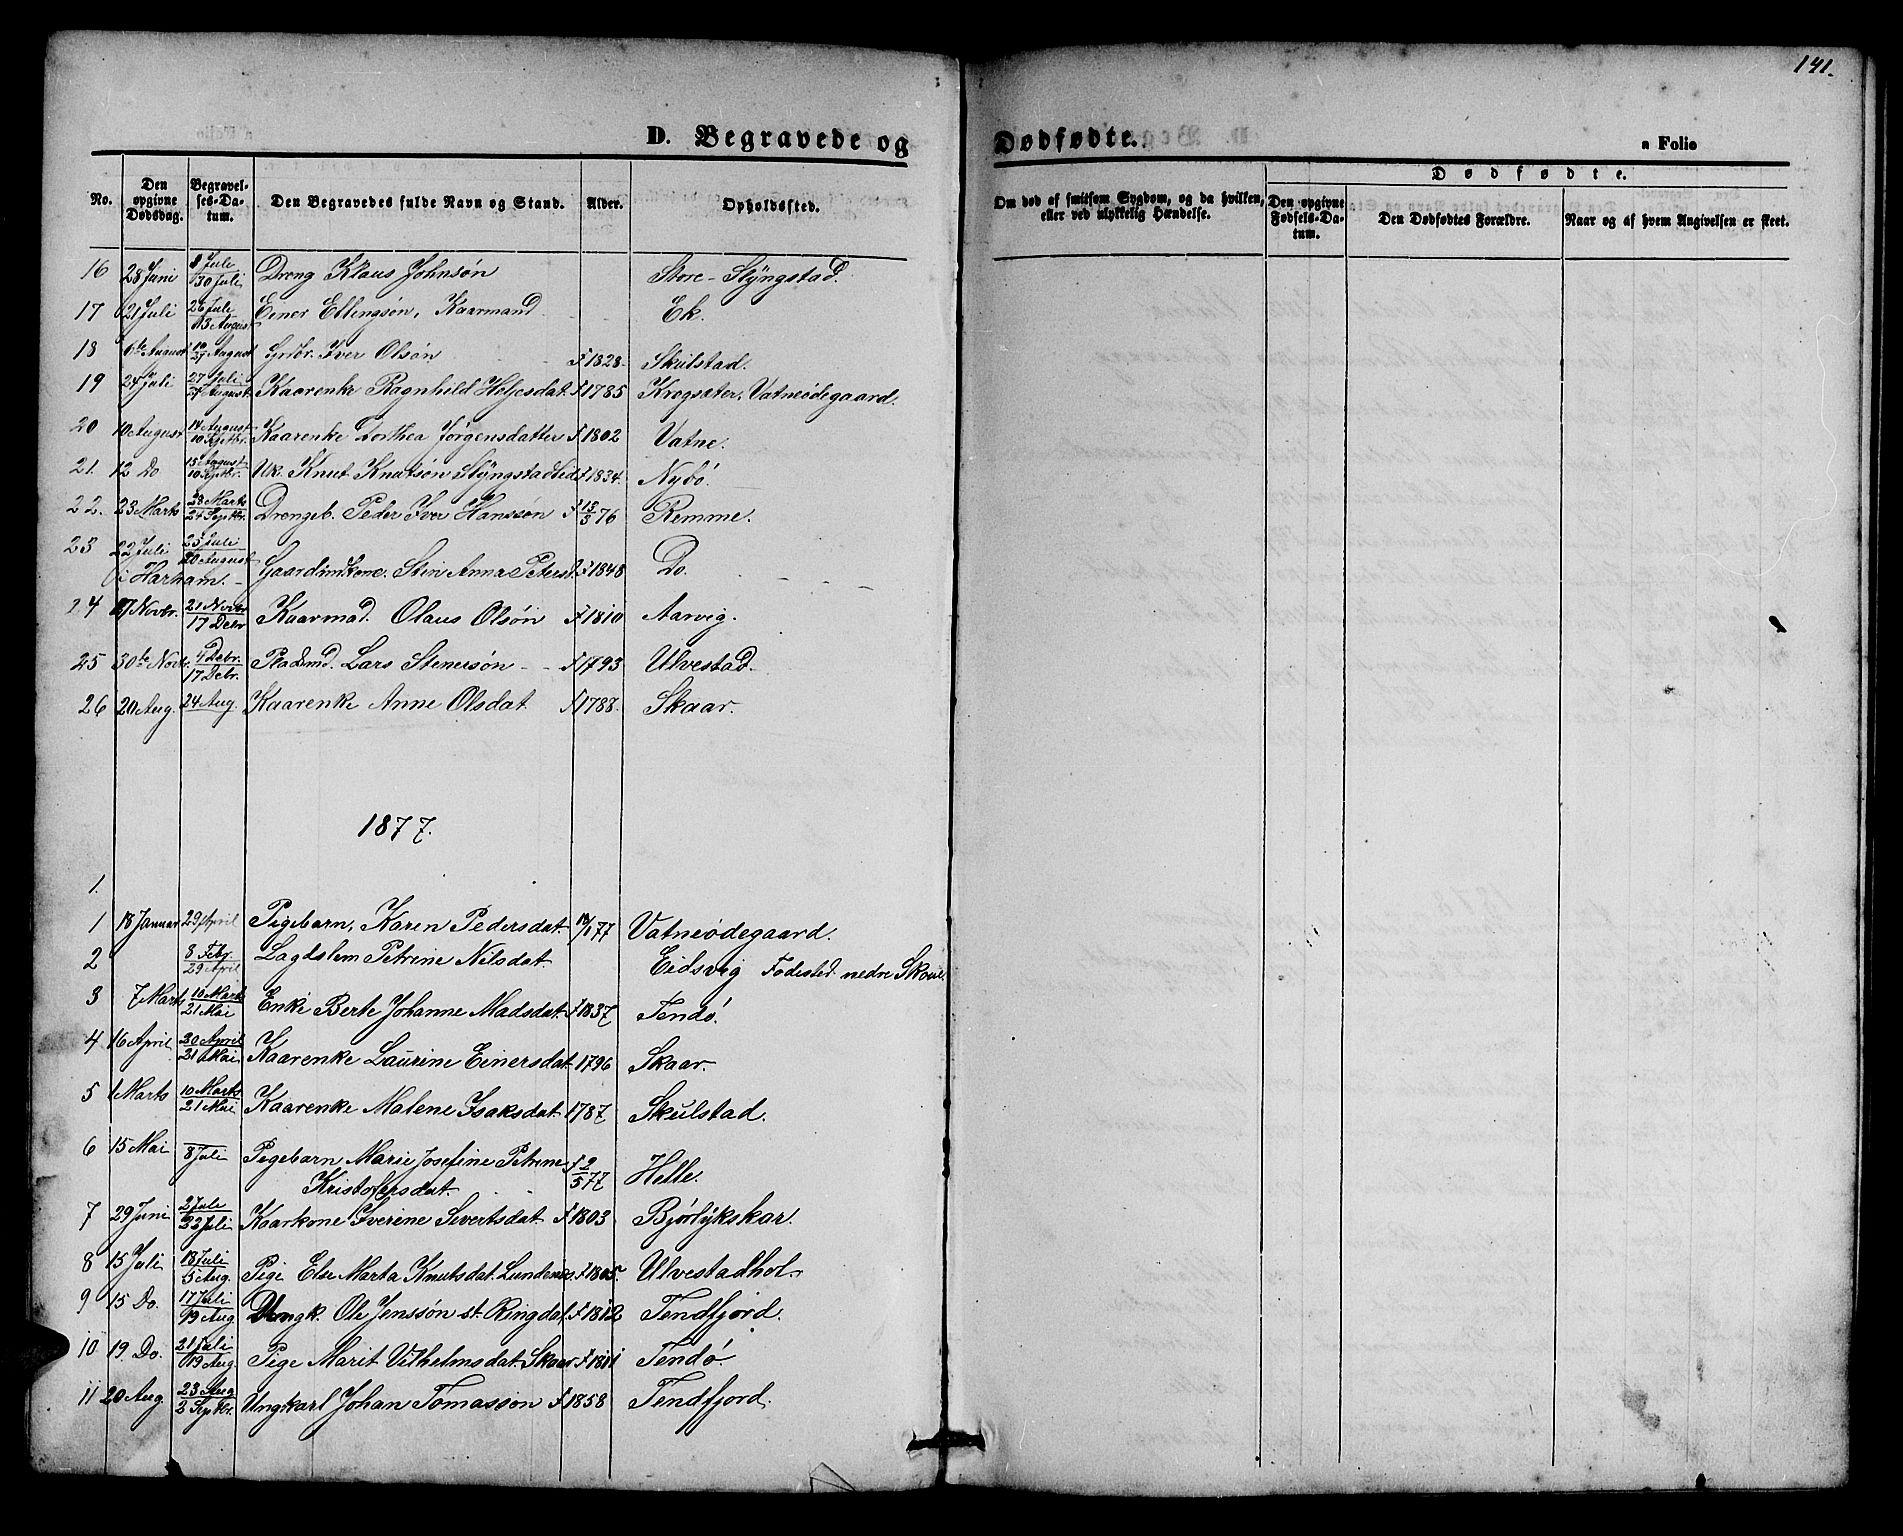 141.
D. Begravede og Dødfødte.
a Folio
No. Den opgivne Dødsdag. Begravelses-Datum. Den Begravedes fulde Navn og Stand. Alder. Opholdssted. Om død af smitsom Sygdom, og da hvilken, eller ved ulykkelig Hændelse. Dødfødte. Den opgivne Fødsels-Datum. Den Dødfødtes Forældre. Naar og af hvem Angivelsen er skeet.
16 28 Juni Juli 30 Juli Dreng Klaus Johnsøn Store-Slyngstad.
17 21 Juli 26 Juli 13 August Einer Ellingsøn, Kaarmand Ek.
18 6te August 10 27 August Grdbr. Iver Olsøn f 1828. Skulstad.
19 24 Juli 27 Juli 27 August Kaarenke Ragnhild Heljesdat. f 1785 Krogsæter, Vatneødegaard.
20 10 August 14 August 10 Septbr. Kaarenke Dorthea Jørgensdatter f 1802 Vatne.
21. 12 Do 15 August 10 Septbr. Uk. Knut Knutsøn Slyngstadlid f 1834. Nybø.
22. 23 Marts 28 Marts 24 Septbr. Drengeb. Peder Iver Hanssøn f 15/3 76 Remme.
23 22 Juli i Harham. 25 Juli 20 August Gaardmkone. Stin Anna Petersd. f 1848 Do.
24 17 Novbr. 21 Novbr 17 Debr Kaarmad. Olaus Olsøn f 1810 Aarvig.
25 30te Novbr. 4 Debr. 17 Debr. Pladsmd. Lars Stenersøn f 1793 Ulvestad.
26 20 Aug. 24 Aug. Kaarenke Anne Olsdat. f 1788. Skaar.
1877.
1.
1 18 Januar 29 April Pigebarn, Karen Pedersdat. 18/1 77 Vatneødegaard.
2 8 Feby. 29 April Lagdslem Petrine Nilsdat. Eidsvig Fødested nedre
3 7 Marts 10 Marts 21 Mai Enke Berte Johanne Madsdat. f 1837 Tendø.
4 16 April 20 April 21 Mai Kaarenke Laurine Einersdat. 1796 Skaar.
5 1 Marts 10 Marts 21 Mai Kaarenke Malene Isaksdat. 1787 Skulstad.
6 15 Mai 8 Juli Pigebarn Marie Josefine Petrine f 2/5 77 Helle.
Kristofersdat.
7 29 Juni 2 Juli 22 Juli Kaarkone Iverine Sivertsdat. f 1803 Bjørlykskar.
8 15 Juli 18 Juli 5 Aug. Pige Else Marta Knutsdat. Lundenes f 1805. Ulvestadhol.
9 15 Do. 17 Juli 19 Aug Ungk. Ole Jenssøn st. Ringdal f 1812 Tendfjord.
10 19 Do. 21 Juli 19 Aug Pige Marit Vilhelmsdat. Skaar f 1811 Tendø.
11 20 Aug. 23 Aug 2 Septbr. Ungkarl Johan Tomassøn f 1858 Tendfjord.